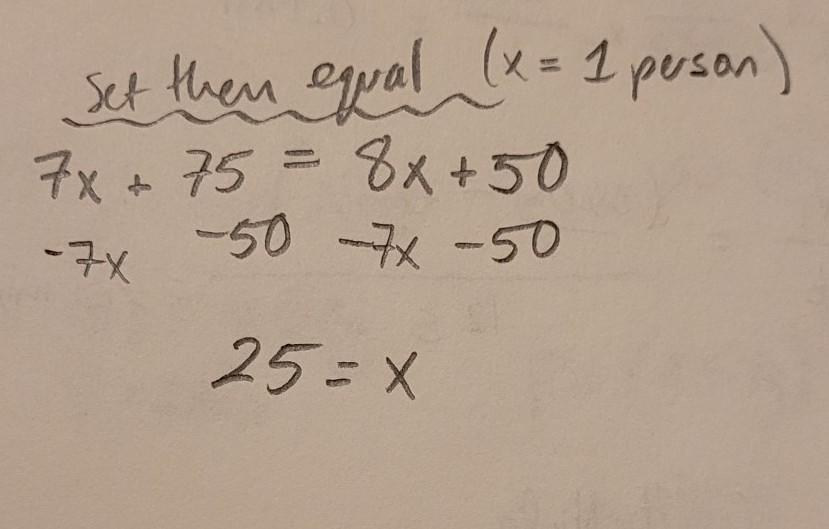 Set them equal (x = 1 person)
7x + 75 = 8x + 50
-7x -50 -7x -50
25 = x